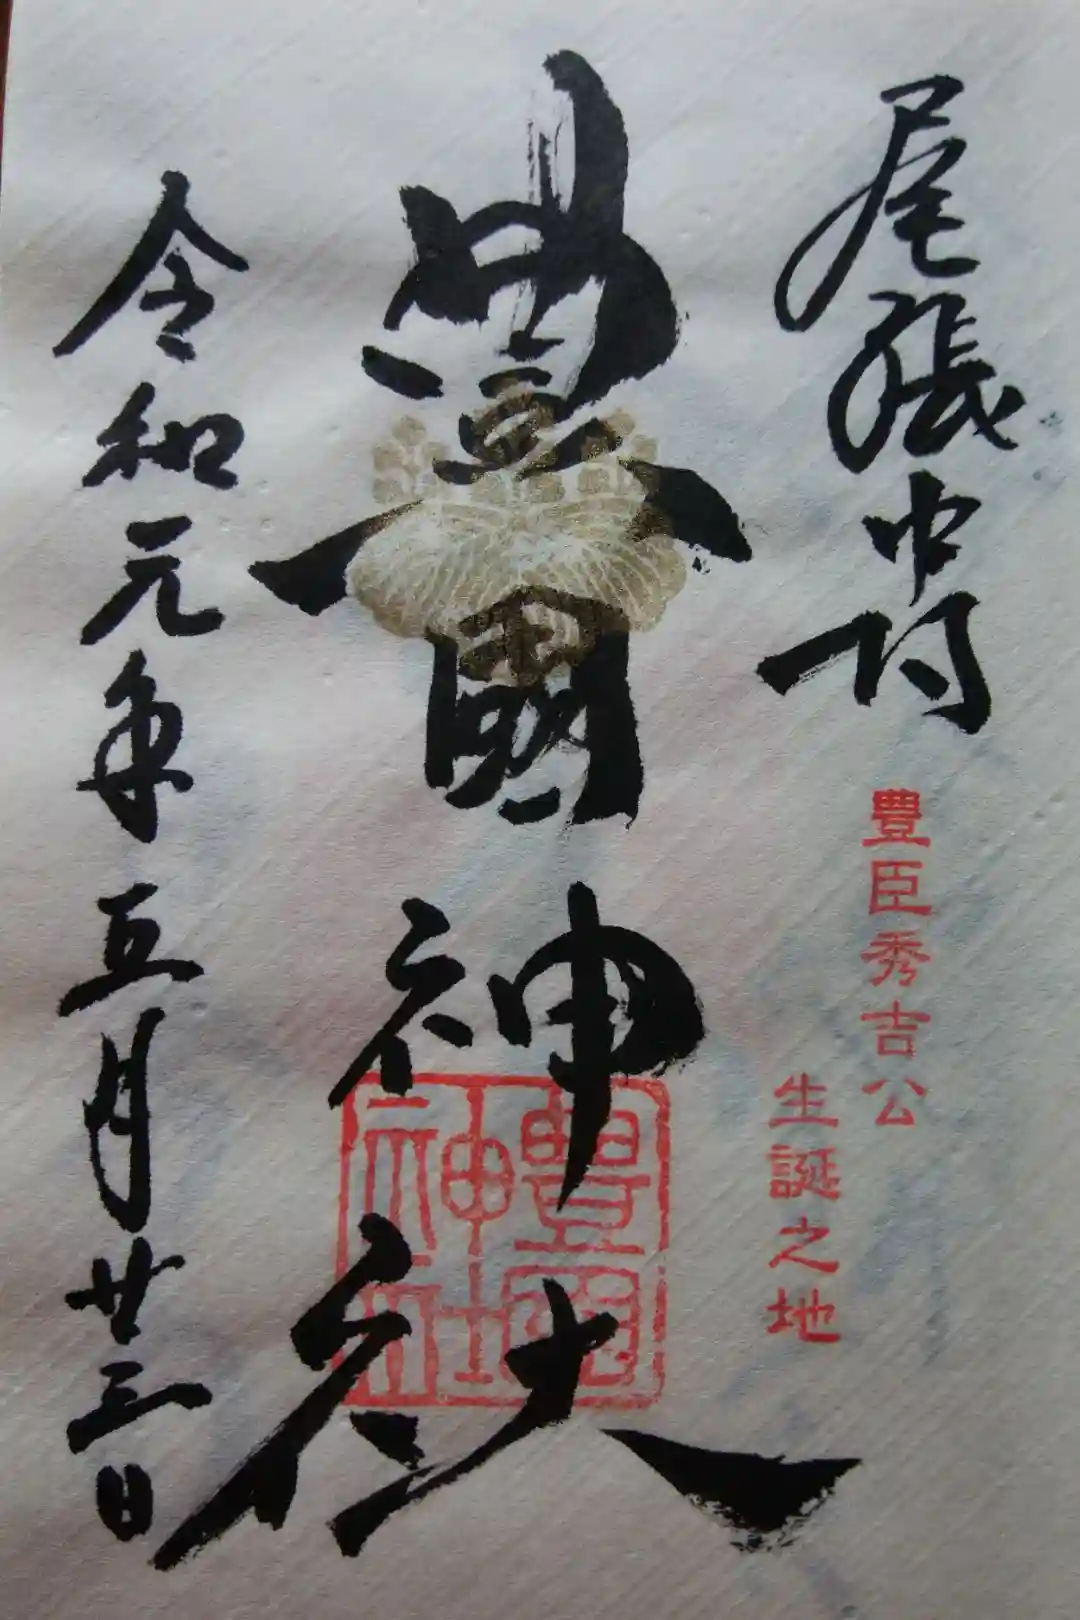 尾張中村
豊臣秀吉公
生誕之地
豐國神社
豐國
神社
令和元年五月廿三日